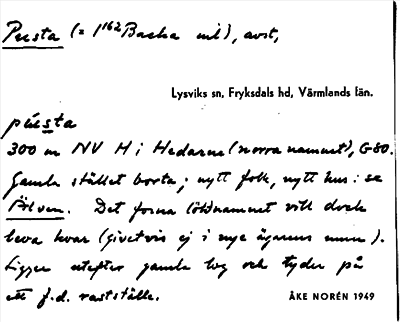 Pusta (= 1¹⁶² Backa ml), avst,
Lysviks sn, Fryksdals hd, Värmlands län.
pùsta
300 m NV H i Hedarne (norra namnet), G-80.
Gamla stället borta; nytt folk, nytt hus: se
Älven. Det forna (ök)namnet vill dock
leva kvar (givetvis ej i nye ägarens mun).
Ligger utefter gamla väg och tyder på
ett f.d. rastställe.
ÅKE NORÉN 1949